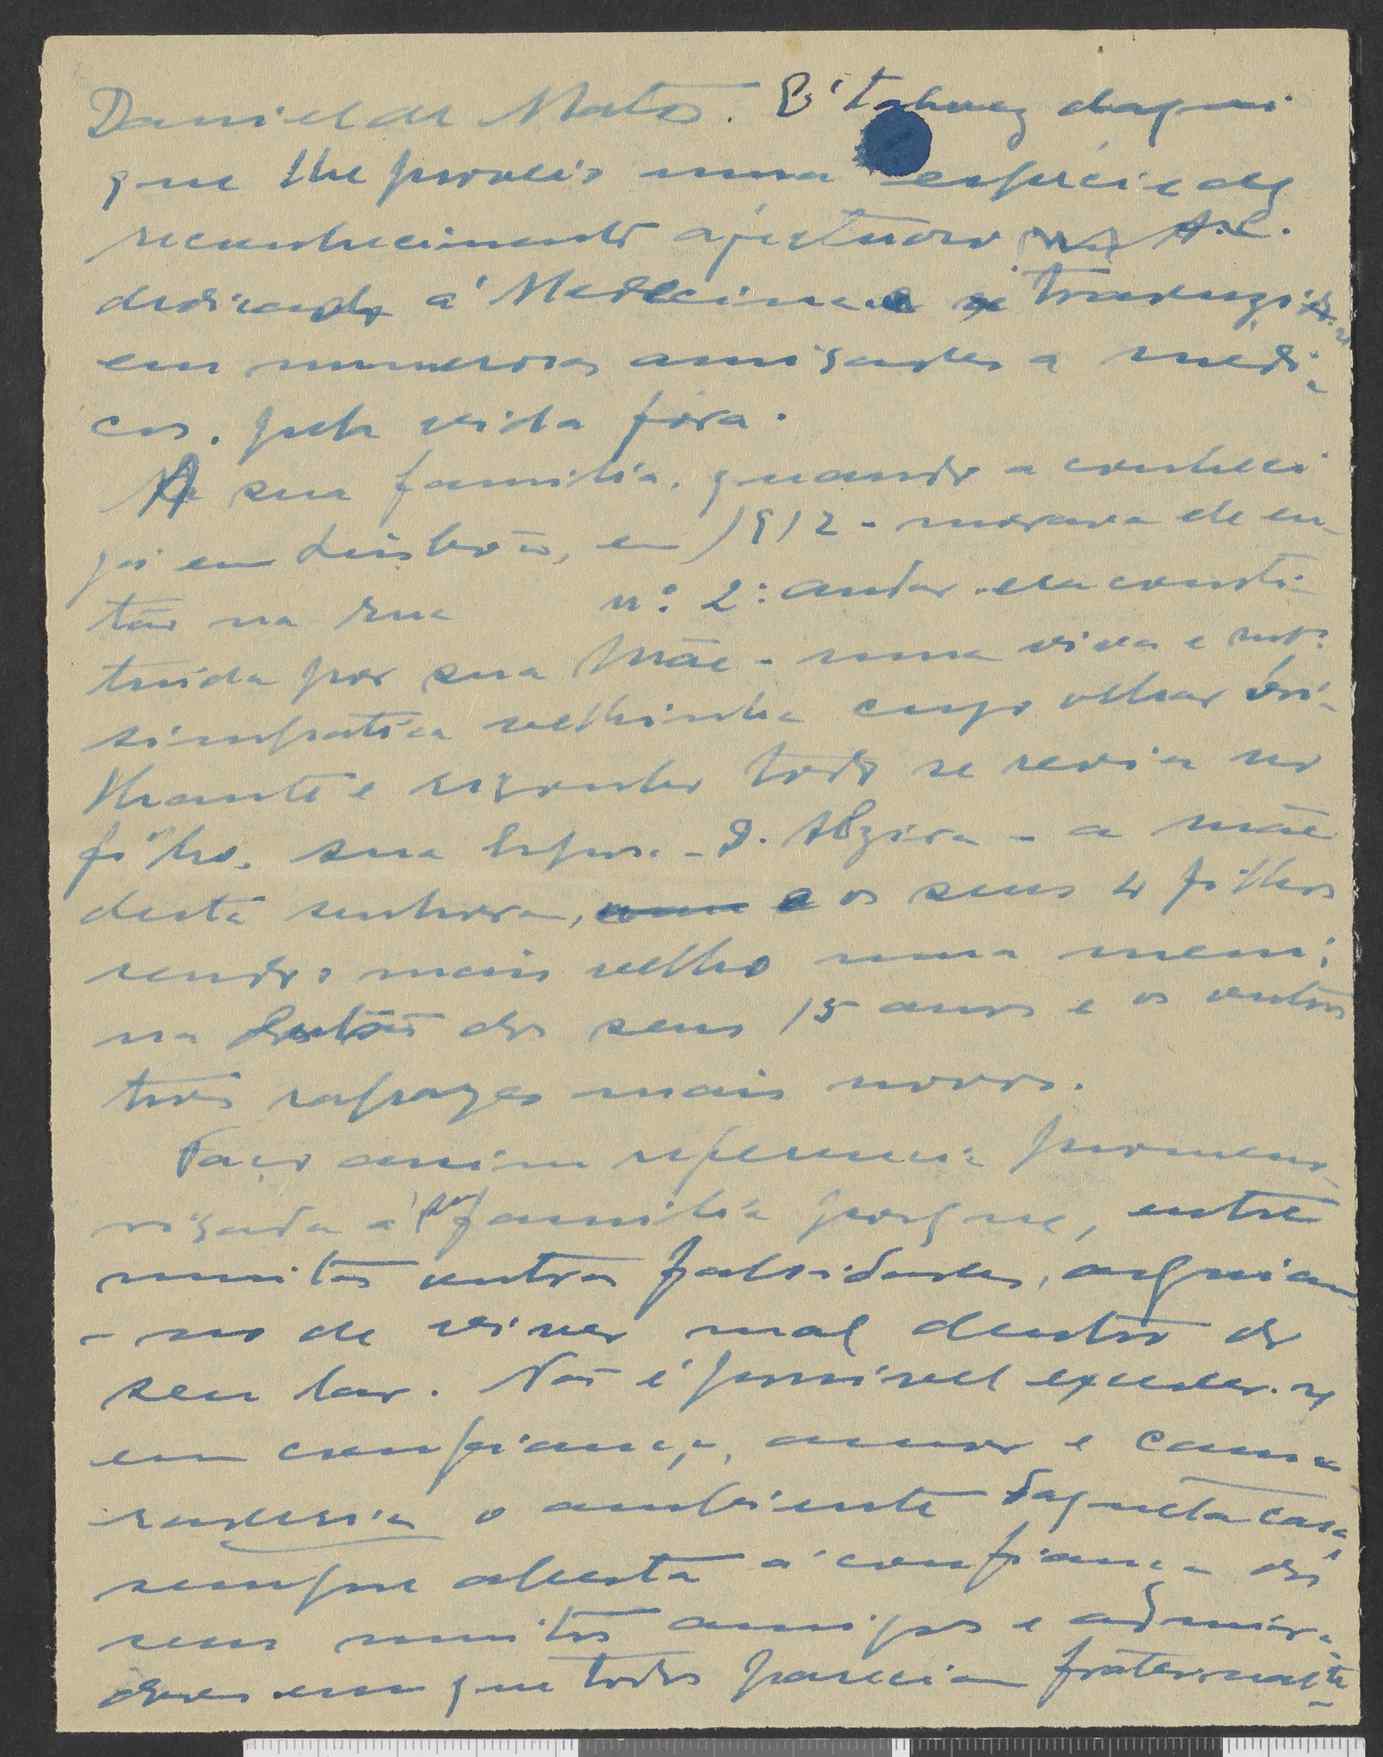 Daniel de Matos. E' talvez daqui
que lhe proveio uma espécie de
reconhecimento afectuoso A.C.
dedicado á Medicina e traduzido
em numerosas amizades a médi-
cos, pela vida fóra.
A sua familia, quando a conheci
já em Lisboa, em 1912 - morava de en-
tão na rua nº 2º andar - era consti-
tuida por sua Mãe - uma viva e
simpatica velhinha cujo olhar bri-
lhante e risonho todo se revia no
filho, sua Esposa - D. Alzira - a mãe
desta senhora, e os seus 4 filhos
sendo o mais velho uma meni-
na então dos seus 15 anos e os outros
três rapazes mais novos.
Faço assim referencia pormeno-
risada á sua familia porque, entre
muitas outras falsidades, arguiam
-no de viver mal dentro do
seu lar. Não é possivel exceder-se
em confiança, amor e cama-
raderia o ambiente daquela casa,
sempre aberta á confiança dos
seus muitos amigos e admira-
dores em que todos pareciam fraternalte